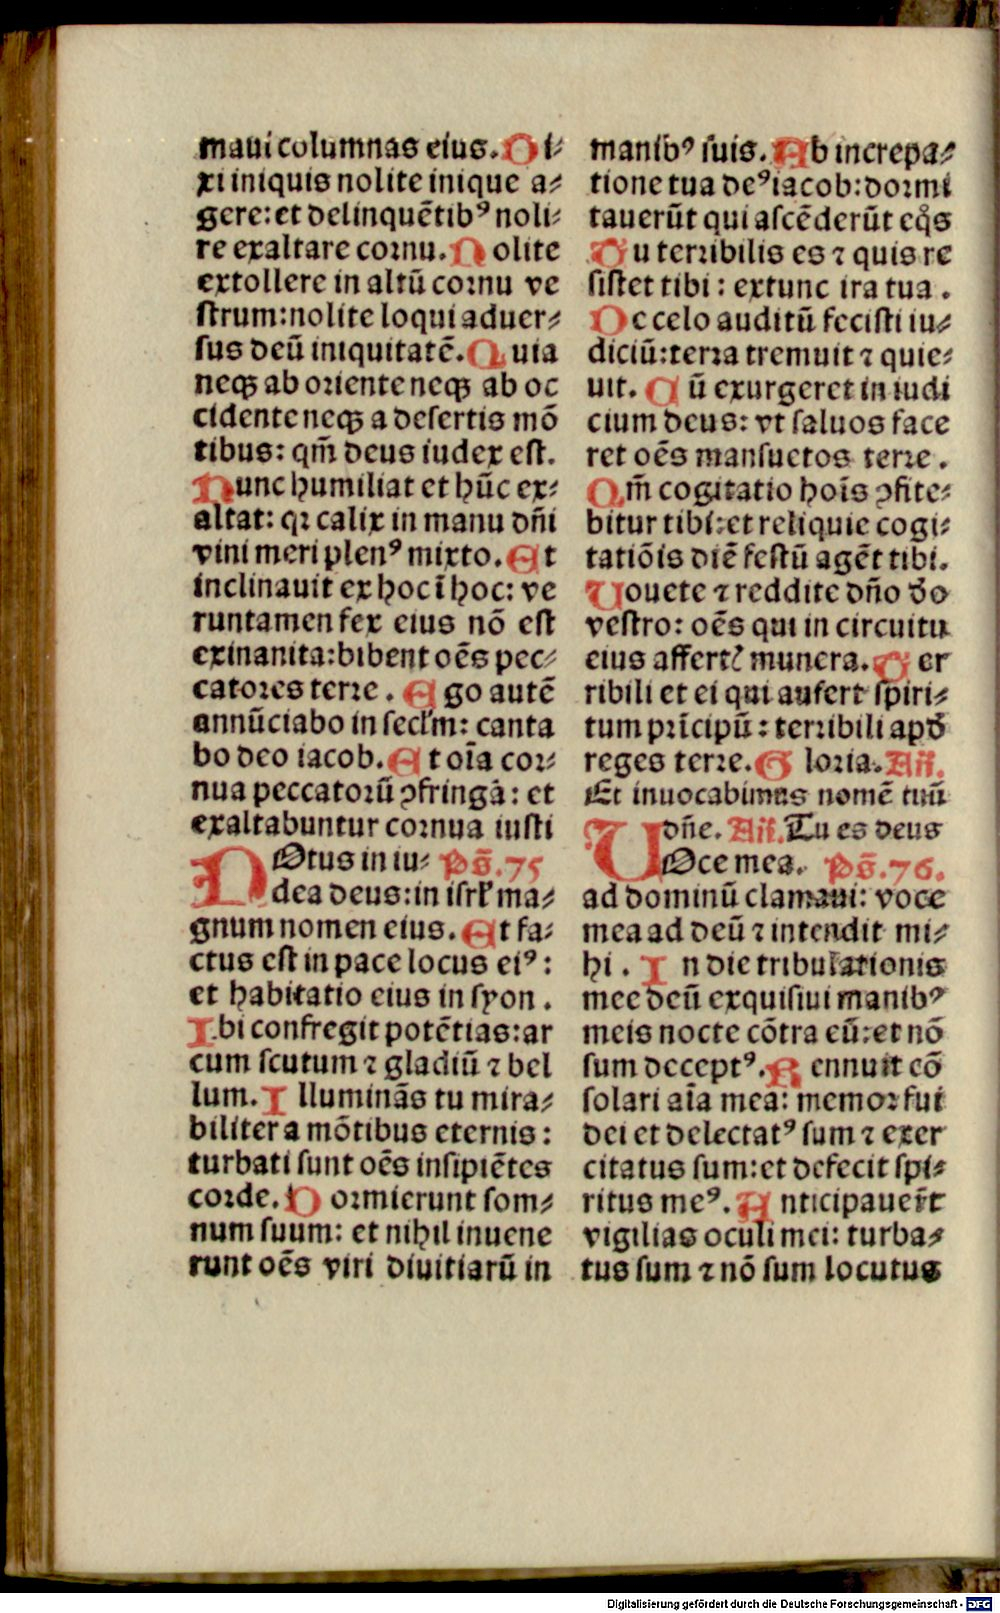 maui columnas eius. Di⸗
xi iniquis nolite inique a⸗
gere: et delinquētibꝰ noli⸗
re exaltare cornu. Nolite
extollere in altū cornu ve
strum: nolite loqui aduer⸗
sus deū iniquitatē. Quia
neqꝫ ab oriente neqꝫ ab oc
cidente neqꝫ a desertis mō
tibus: qm̄ deus iudex est.
Nunc humiliat et hūc ex⸗
altat: qꝛ calix in manu dn̄i
vini meri plenꝰ mixto. Et
inclinauit ex hoc ī hoc: ve
runtamen fex eius nō est
exinanita: bibent oēs pec⸗
catores terre. Ego autē
annūciabo in secl'm: canta
bo deo iacob. Et oīa cor⸗
nua peccatorū ꝯfringā: et
exaltabuntur cornua iusti
NOtus in iu⸗ Ps̄. 75
dea deus: in isrl' ma⸗
gnum nomen eius. Et fa⸗
ctus est in pace locus eiꝰ:
et habitatio eius in syon.
Ibi confregit potētias: ar
cum scutum ⁊ gladiū ⁊ bel
lum. Illuminās tu mira⸗
biliter a mōtibus eternis:
turbati sunt oēs insipiētes
corde. Dormierunt som⸗
num suum: et nihil inuene
runt oēs viri diuitiarū in
manibꝰ suis. Ab increpa⸗
tione tua deꝰ iacob: dormi
tauerūt qui ascēderūt eq̊s
Tu terribilis es ⁊ quis re
sistet tibi: extunc ira tua.
De celo auditū fecisti iu⸗
diciū: terra tremuit ⁊ quie⸗
uit. Cū exurgeret in iudi
cium deus: vt saluos face
ret oēs mansuetos terre.
Qm̄ cogitatio hoīs ꝯfite⸗
bitur tibi: et reliquie cogi⸗
tatiōis diē festū agēt tibi.
Uouete ⁊ reddite dn̄o dō
vestro: oēs qui in circuitu
eius affertꝭ munera. Ter
ribili et ei qui aufert spiri⸗
tum prīcipū: terribili apd̄
reges terre. Gloria. An̄.
Et inuocabimus nomē tuū
dn̄e. An̄. Tu es deus
UOce mea. Ps̄. 76.
ad dominū clamaui: voce
mea ad deū ⁊ intendit mi⸗
hi. In die tribulationis
mee deū exquisiui manibꝰ
meis nocte cōtra eū: et nō
sum deceptꝰ. Rennuit cō
solari aīa mea: memor fui
dei et delectatꝰ sum ⁊ exer
citatus sum: et defecit spi⸗
ritus meꝰ. Anticipauer̄t
vigilias oculi mei: turba⸗
tus sum ⁊ nō sum locutus
Digitalisierung gefördert durch die Deutsche Forschungsgemeinschaft - DFG